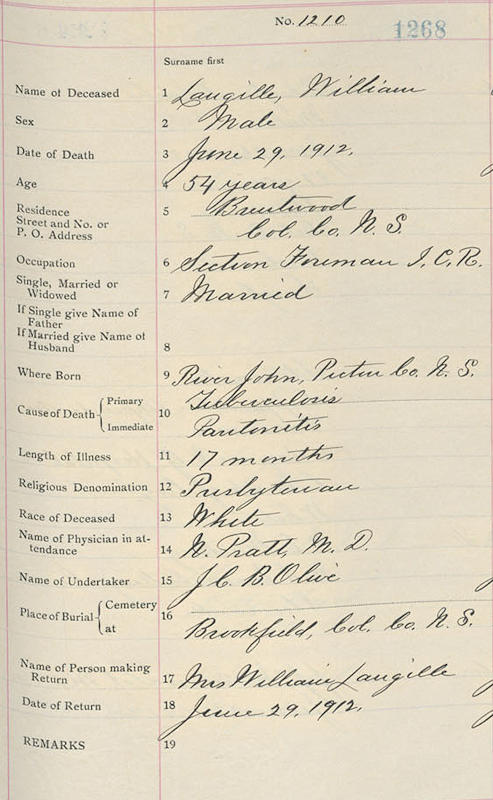 No. 1210
1268
Surname first
Name of Deceased 1 Langille, William
Sex 2 Male
Date of Death 3 June 29, 1912.
Age 4 54 years
Residence
Street and No. or
P. O. Address 5 Brentwood
Col. Co. N. S.
Occupation 6 Section Foreman I. C. R.
Single, Married or
Widowed 7 Married
If Single give Name of
Father
If Married give Name of
Husband 8
Where Born 9 River John, Pictou Co. N. S.
Cause of Death Primary Tuberculosis
10
Immediate Paritonitis
Length of Illness 11 17 months
Religious Denomination 12 Presbyterian
Race of Deceased 13 White
Name of Physician in at-
tendance 14 N. Pratt, M. D.
Name of Undertaker 15 J. C. B. Olive
Place of Burial Cemetery 16
at Brookfield, Col. Co. N. S.
Name of Person making
Return 17 Mrs William Langille
Date of Return 18 June 29, 1912.
REMARKS 19